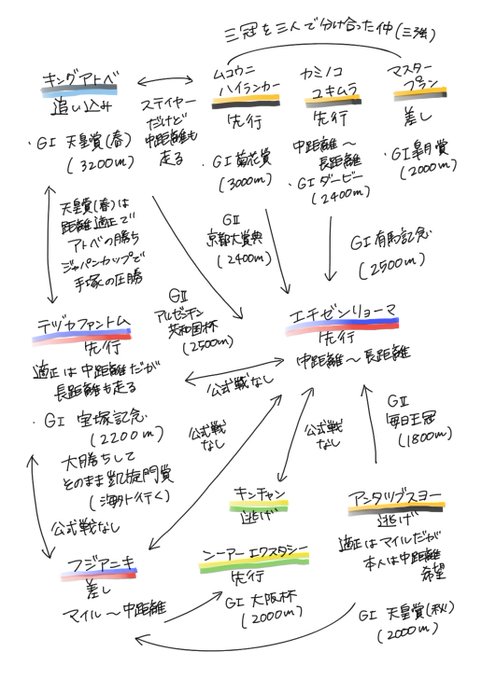 三冠を三人で分け合った仲(三強)
キングアトベ
追い込み
・GⅠ 天皇賞(春)
(3200m)
ステイヤー
だけど
中距離も
走る
ムコウニ
ハイランカー
先行
・GⅠ 菊花賞
(3000m)
カミノコ
ユキムラ
先行
中距離〜
長距離
・GⅠダービー
(2400m)
マスター
プラン
差し
・GⅠ皐月賞
(2000m)
天皇賞(春)は
距離適正で
アトベの勝ち
ジャパンカップで
手塚の圧勝
GⅡ
京都大賞典
(2400m)
GⅠ有馬記念
(2500m)
GⅡ
アルゼンチン
共和国杯
(2500m)
テヅカファントム
先行
適正は中距離だが
長距離も走る
・GⅠ 宝塚記念
(2200m)
大勝ちして
そのまま凱旋門賞
(海外行く)
エチゼンリョーマ
先行
中距離〜長距離
公式戦なし
公式戦
なし
公式戦
なし
GⅡ
毎日王冠
(1800m)
公式戦なし
キンチャン
逃げ
アンタップスヨー
逃げ
適正はマイルだが
本人は中距離
希望
フジアニキ
差し
マイル〜中距離
ンーアーエクスタシー
先行
GⅠ 大阪杯
(2000m)
GⅠ 天皇賞(秋)
(2000m)